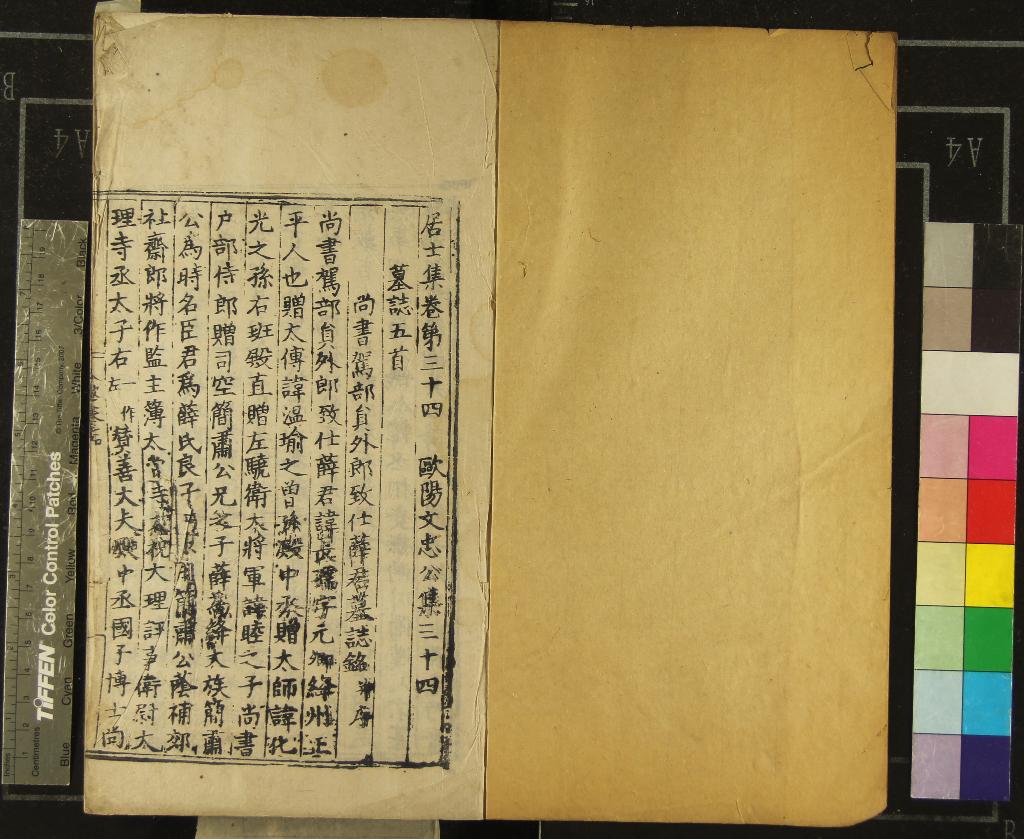 居士集卷第三十四　歐陽文忠公集三十四
墓誌五首
尚書駕部負外郎致仕薛君墓誌銘并序
尚書駕部負外郎致仕薛君諱長孺字元卿絳州正
平人也贈太傅諱溫瑜之曾孫殿中丞贈太師諱化
光之孫右班殿直贈左驍衛大將軍諱睦之子尚書
户部侍郎贈司空簡肅公兄之子薛為絳大族簡肅
公為時名臣君為薛氏良子 簡肅公蔭補郊
社齋郎將作監主簿太常寺太祝大理評事衛尉太
理寺丞太子右一作左賛善大夫殿中丞國子博士尚
TIFFEN Color Control Patches
© The Tiffen Company, 2007
Blue Cyan Green Yellow Red Magenta White 3/Color Black
Centimetres
Inches
A4
A4
B
B